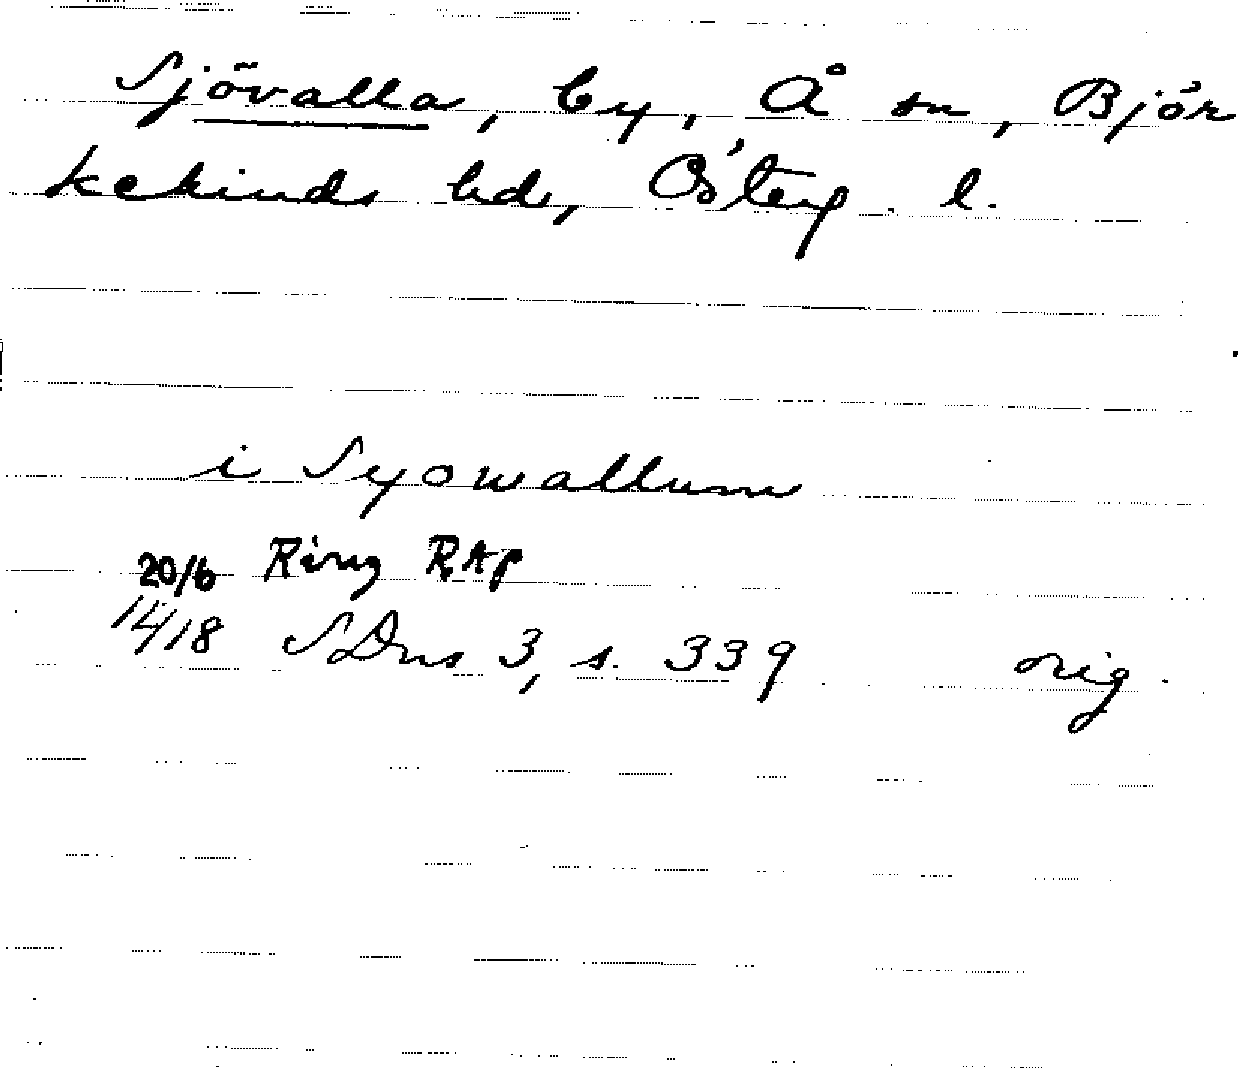 Sjövalla, by, Å sn, Björ
kekinds hd, Österg. l.
i Syowallum
20/6 Ring RAp
1418 SDns 3, s. 339 orig.